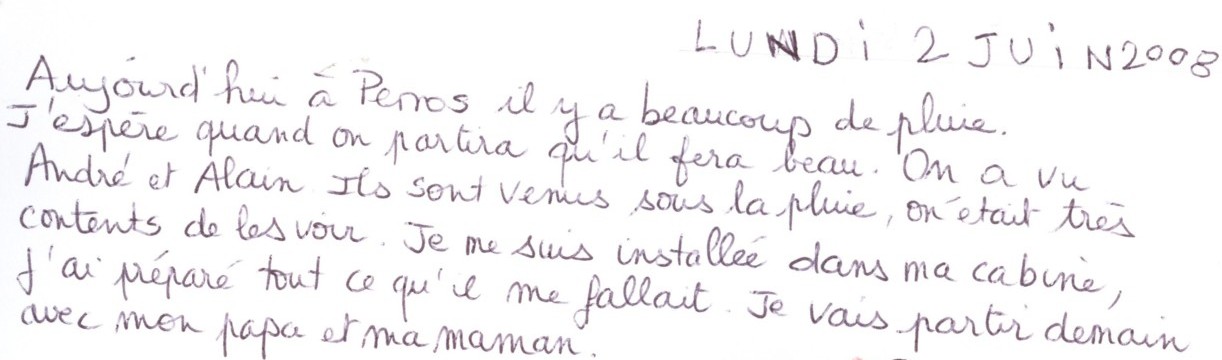 LUNDi 2 JUiN 2008
Aujourd'hui à Perros il y a beaucoup de pluie.
J'espère quand on partira qu'il fera beau. On a vu
André et Alain Ils sont venus sous la pluie, on était très
contents de les voir. Je me suis installeé dans ma cabine,
J'ai préparé tout ce qu'il me fallait. Je vais partir demain
avec mon papa et ma maman.